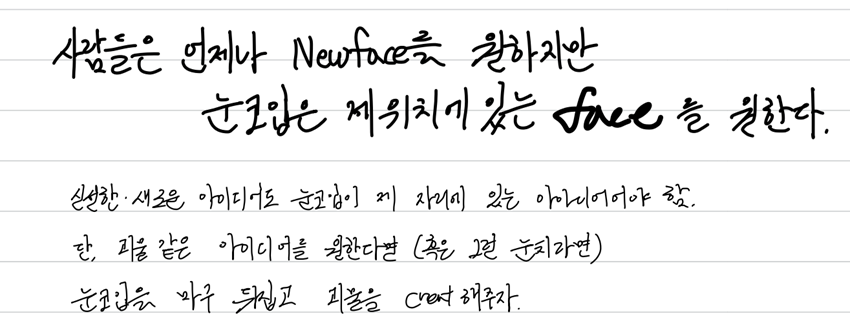 사람들은 언제나 Newface를 원하지만
눈코입은 제위치에 있는 face 를 원한다.
신선한·새로운 아이디어도 눈코입이 제 자리에 있는 아이디어어야 함.
단, 괴물 같은 아이디어를 원한다면 (혹은 그런 눈치라면)
눈코입을 마구 뒤집고 괴물을 creat해주자.